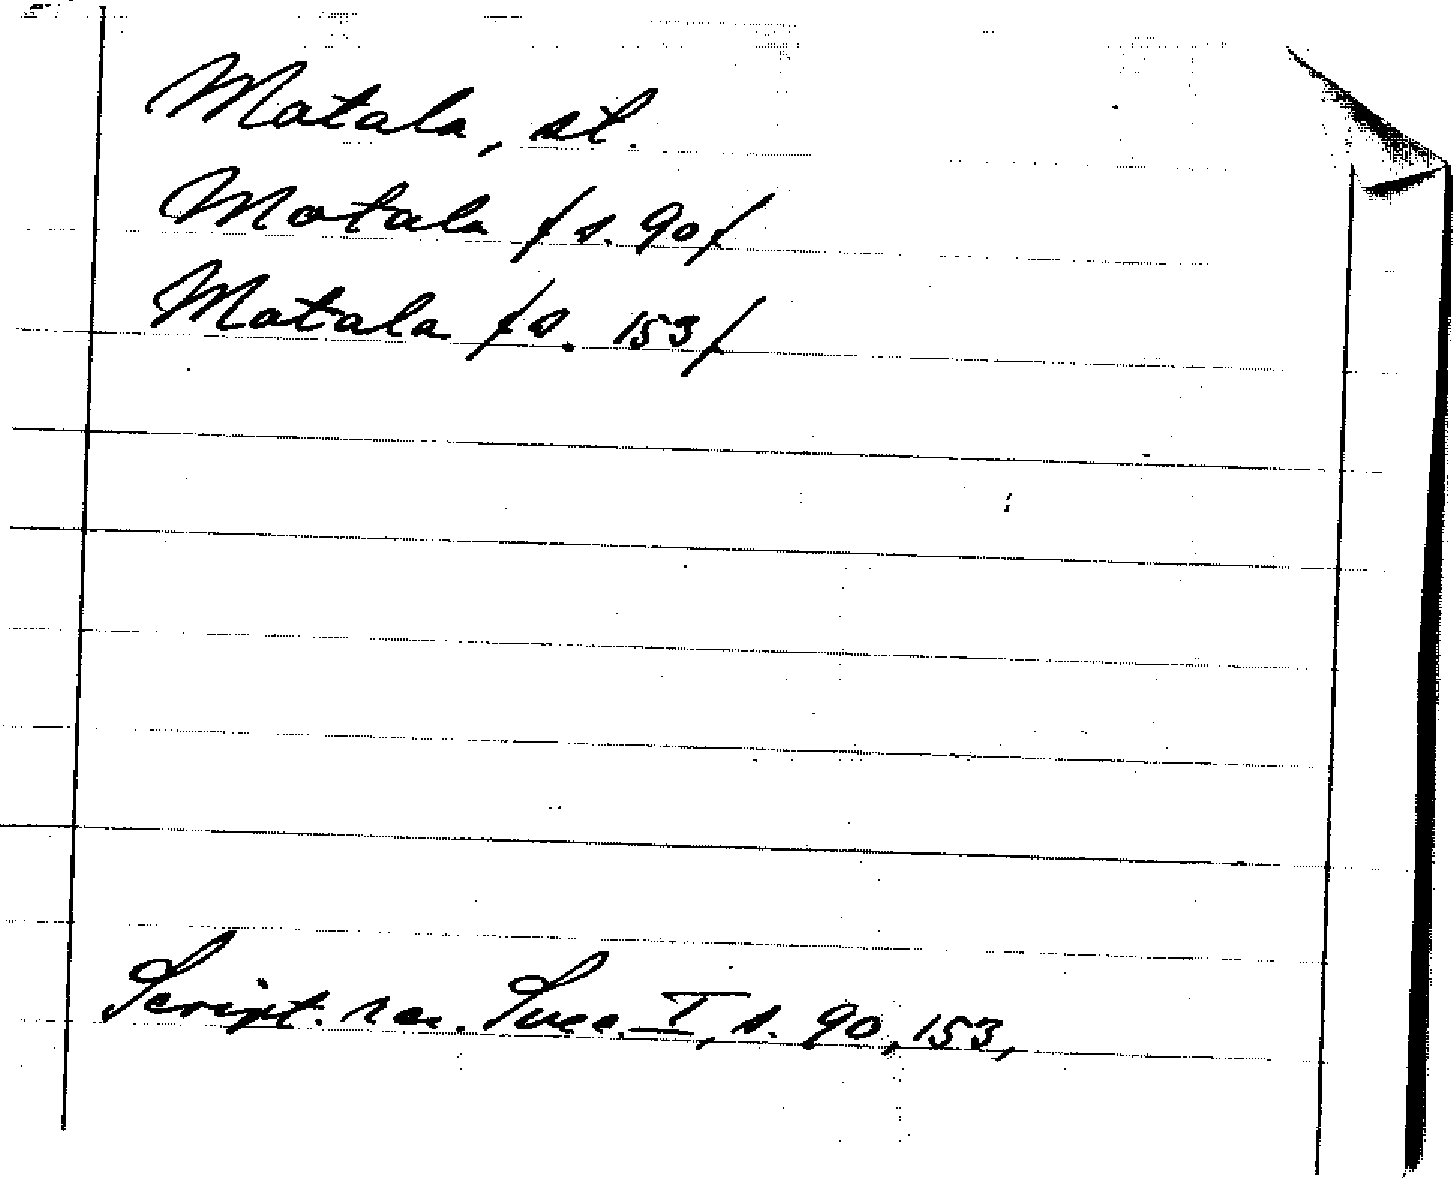 Motala, st.
Motala /s. 90/
Motala /s. 153/
Script. rer. Suec. I, s. 90, 153,